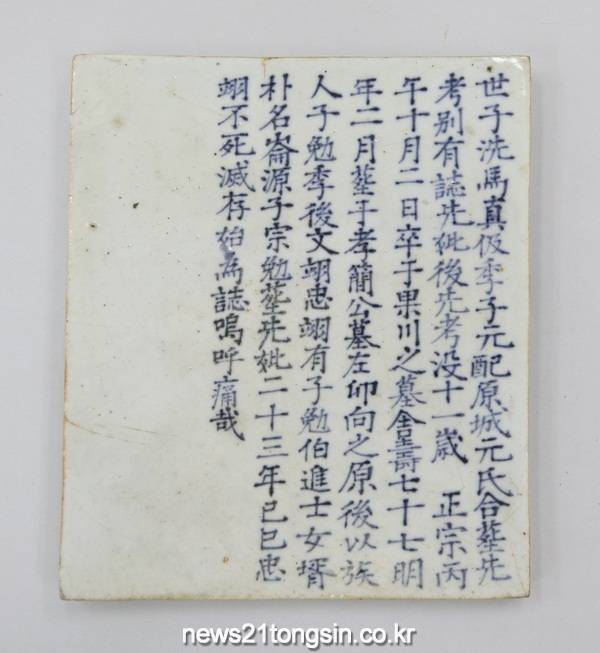 世子洗馬真伋季子元配原城元氏合塟先
考别有誌先妣後先考没十一歲 正宗丙
午十月二日卒于果川之墓舍呈壽七十七明
年二月塟于孝簡公墓左卯向之原後以族
人子勉季後文翊忠翊有子勉伯進士女壻
朴名崙源子宗勉塟先妣二十三年己巳忠
翊不死滅存始為誌嗚呼痛哉
news21tongsin.co.kr